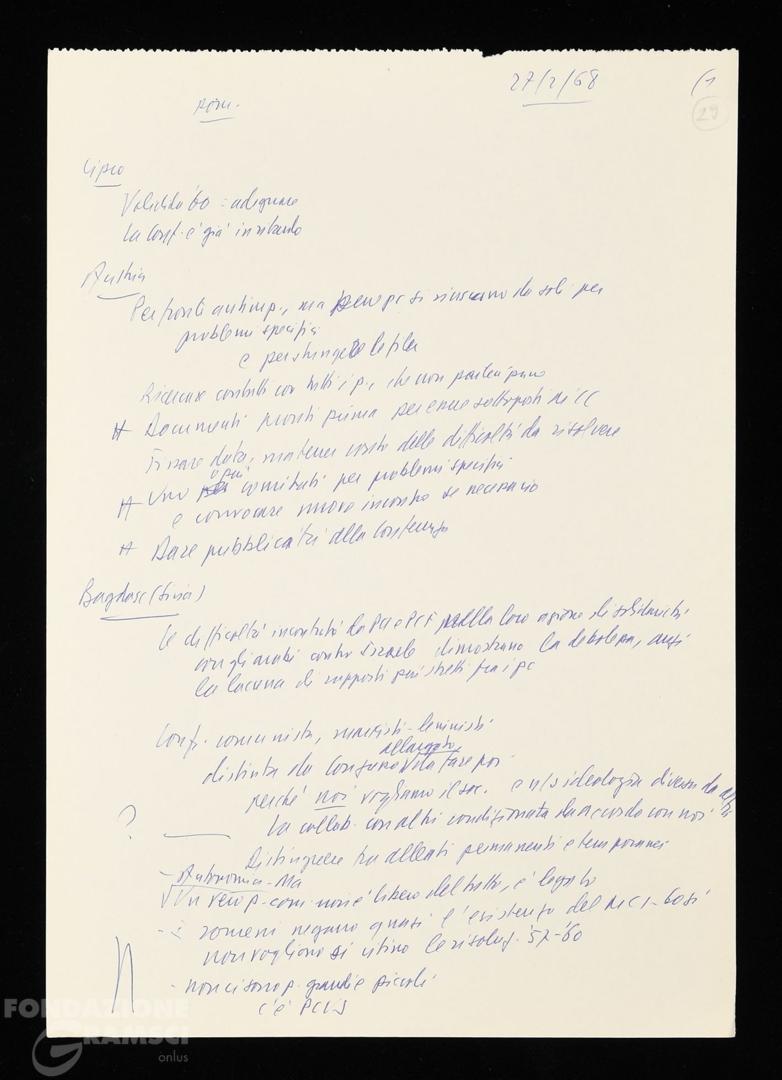 27/2/68
(1
29
pom.
Cipro
Validità '60 : adeguare
La conf. è già in ritardo
Austria
Per fronti antimp., ma pc si riuniscano da soli per
problemi specifici
e per stringere le file
Ricercare contatti con tutti i p. che non partecipano
H Documenti pronti prima per essere sottoposti ai CC
Fissare data, ma tener conto delle difficoltà da risolvere
o più
H Uno comitati per problemi specifici
e convocare nuovo incontro se necessario
H Dare pubblicità alla Conferenza
Bagdasc (Siria)
Le difficoltà incontrate da PCI e PCF nella loro azione di solidarietà
con gli arabi contro Israele dimostrano la debolezza, anzi
la lacuna di rapporti più stretti fra i pc
Conf. comunista, marxisti-leninisti
allargata
distinta da
perché noi vogliamo il soc. e n/s ideologia diversa da altri
La collab. con altri condizionata da accordo con noi.
?
Distinguere tra alleati permanenti e temporanei
- Autonomia - Ma
Un vero p. com. non è libero del tutto, è legato
- romeni negano quasi l'esistenza del MCI -
non vogliono si citino le risoluz. '57-'60
- non ci sono p. grandi e piccoli
c'è PCUS
FONDAZIONE
GRAMSCI
onlus